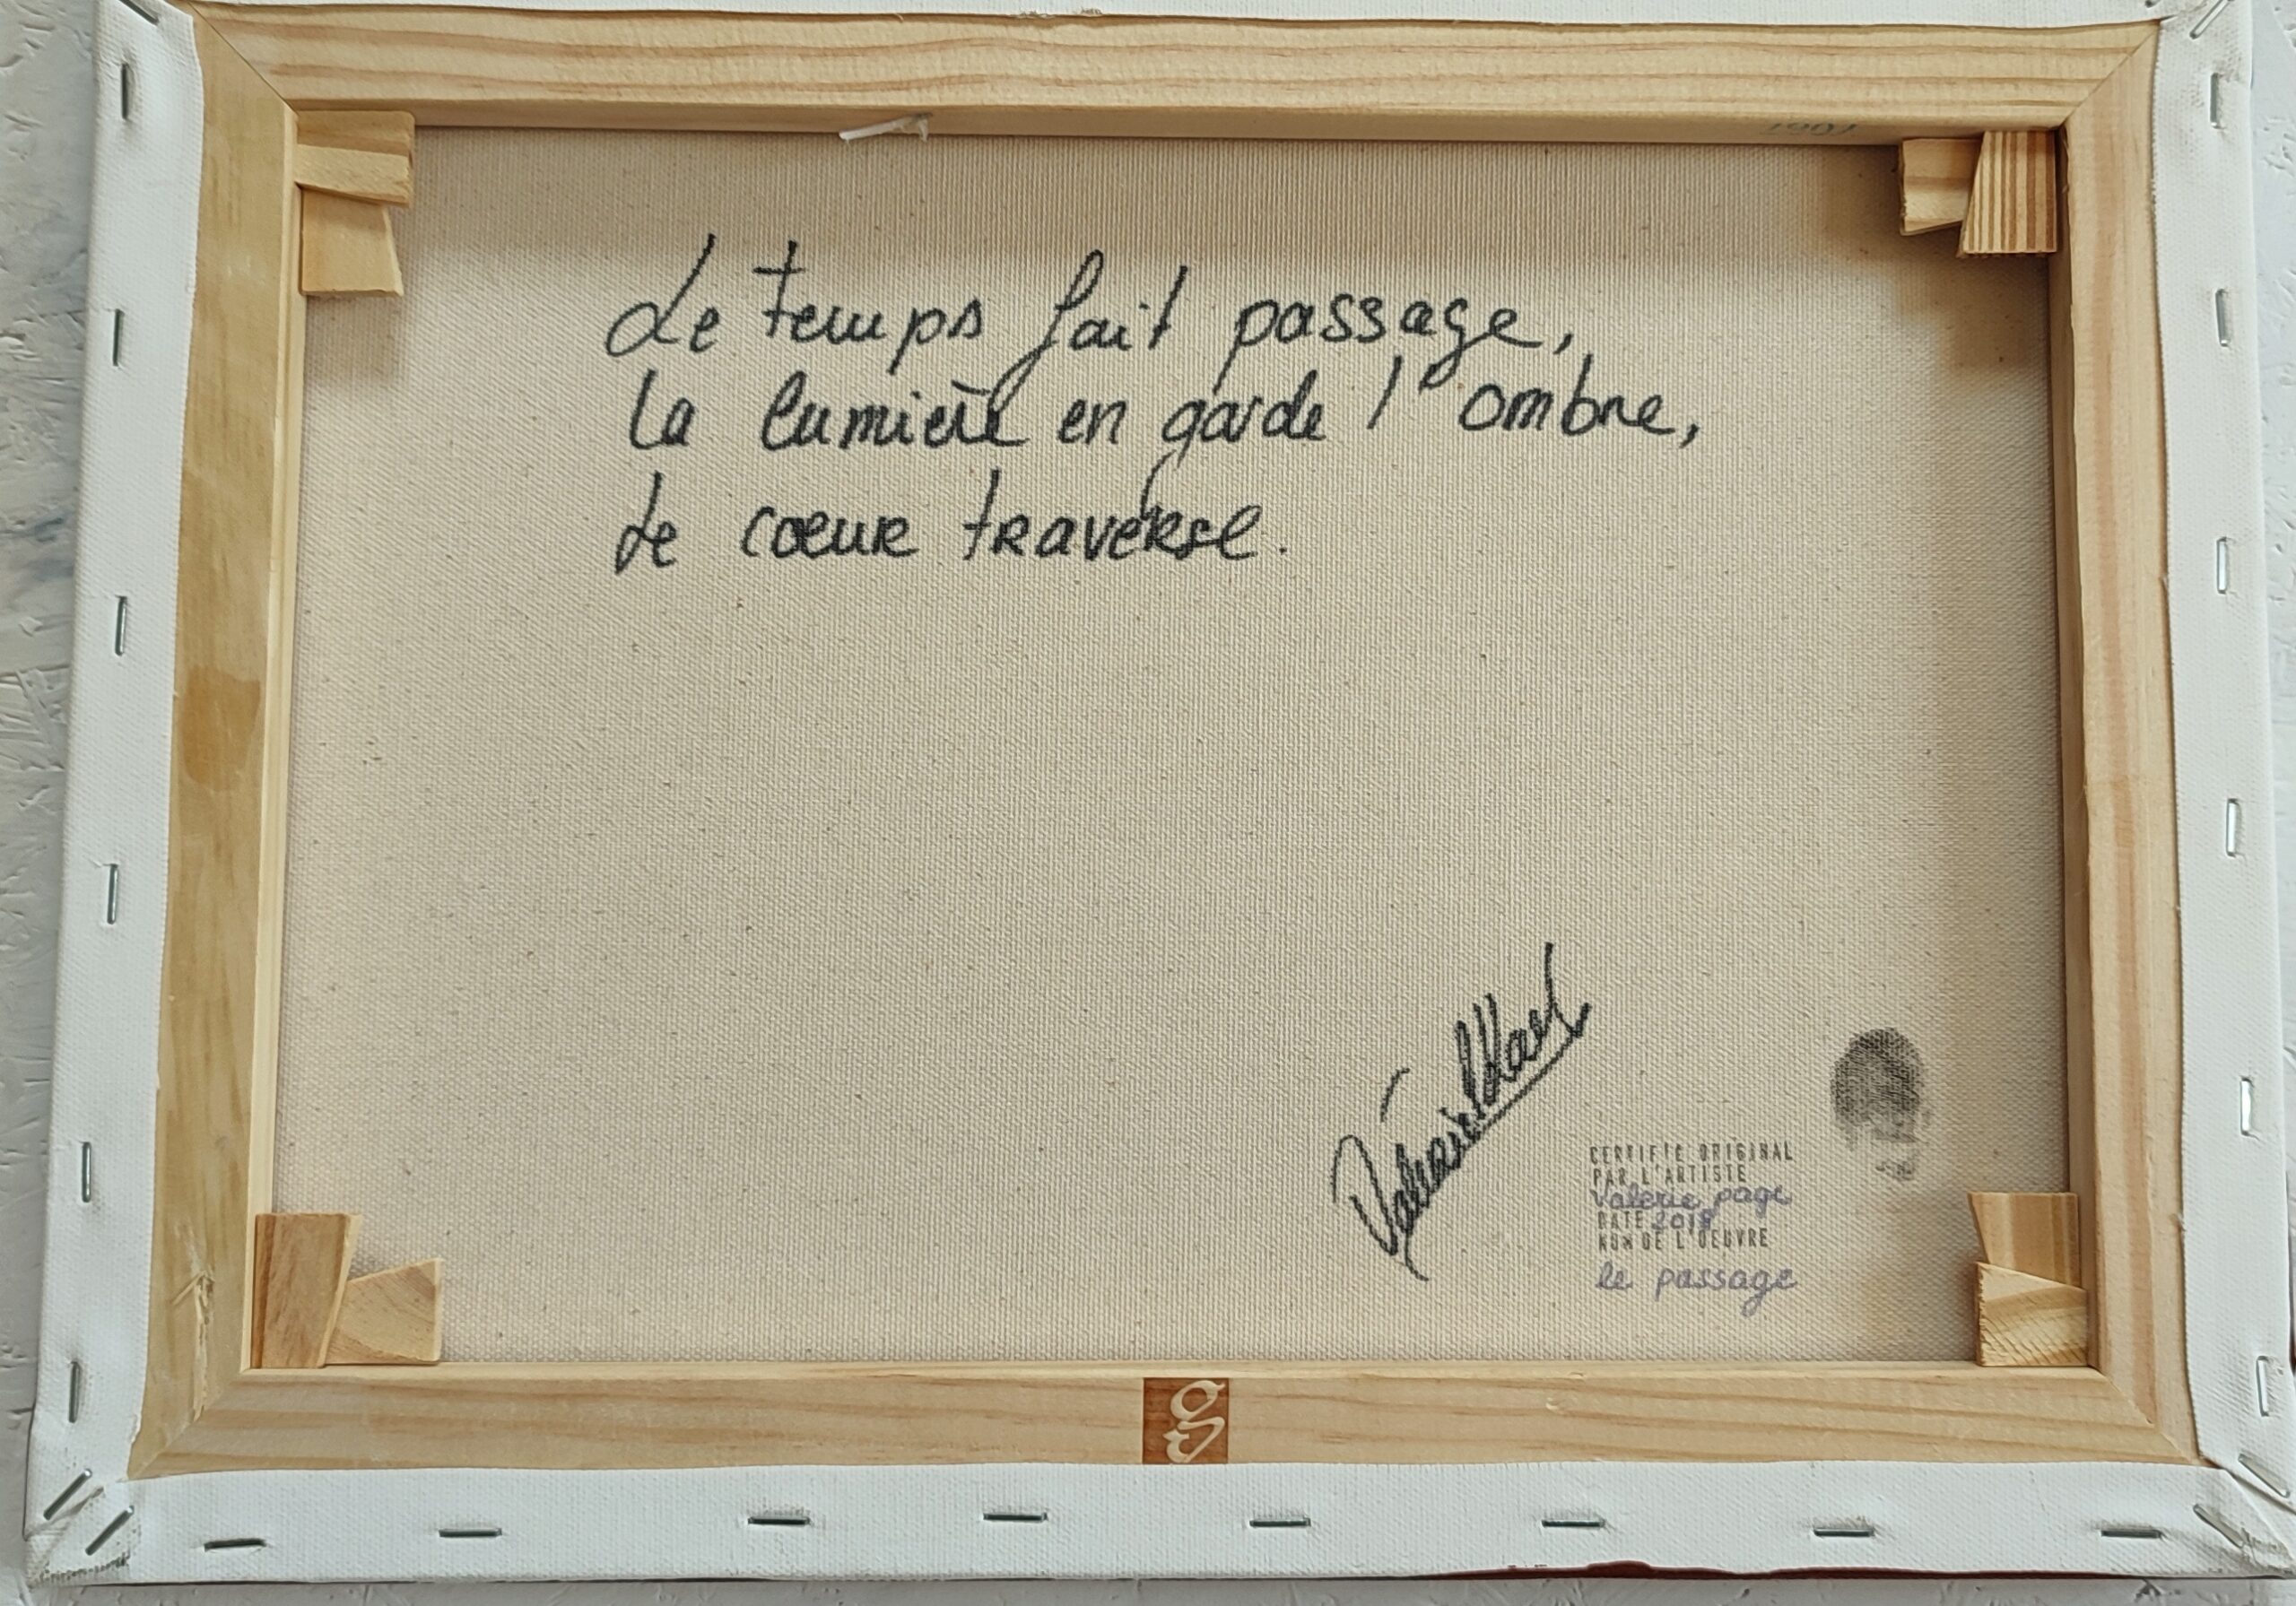 Le temps fait passage,
la lumière en garde l'ombre,
Le cœur traverse.
CERTIFIÉ ORIGINAL
PAR L'ARTISTE
Valerie page
DATE 2018
NOM DE L'OEUVRE
le passage
g